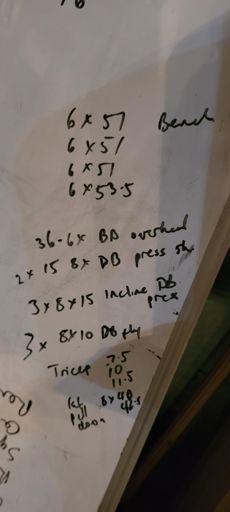 6 x 51 Bench
6 x 51
6 x 51
6 x 53.5
36-6x BB overhead
2 x 15 8x DB press
3 x 8 x 15 Incline DB press
3 x 8x10 DB fly
Tricep 7.5
10
11.5
lat 8x40
pull
down